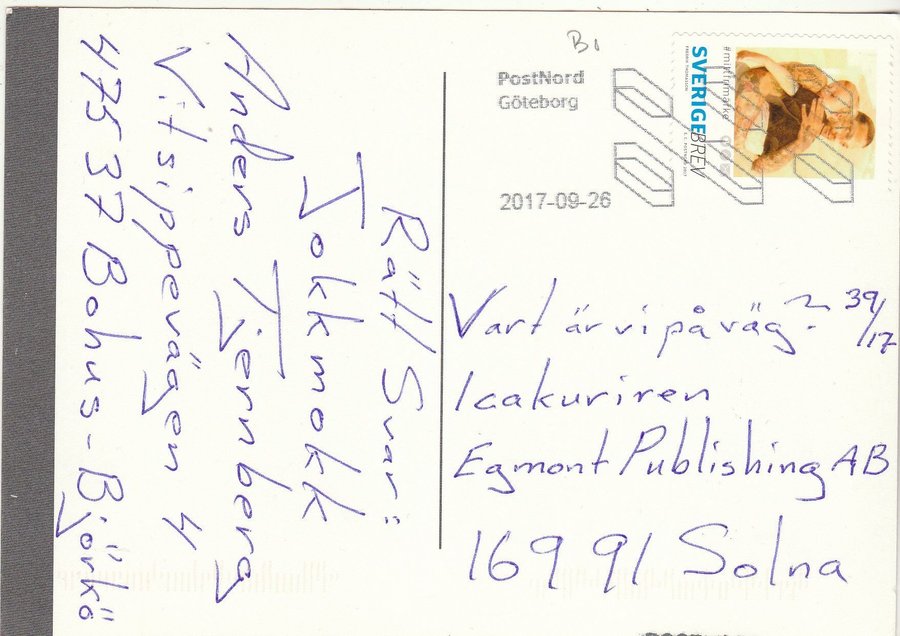 Rätt Svar:
Jokkmokk
Anders Tjernberg
Vitsippevägen 4
47537 Bohus-Björkö
B1
PostNord
Göteborg
2017-09-26
#mittfrimärke
SVERIGE BREV
Vart är vi på väg? 39/17
Icakuriren
Egmont Publishing AB
169 91 Solna